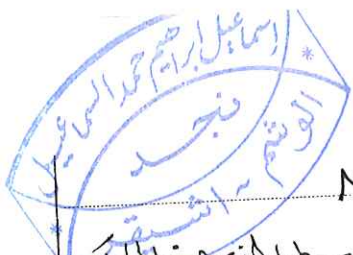 إسماعيل إبراهيم حمد السماعيل
نجد
الوشم - اشيقر